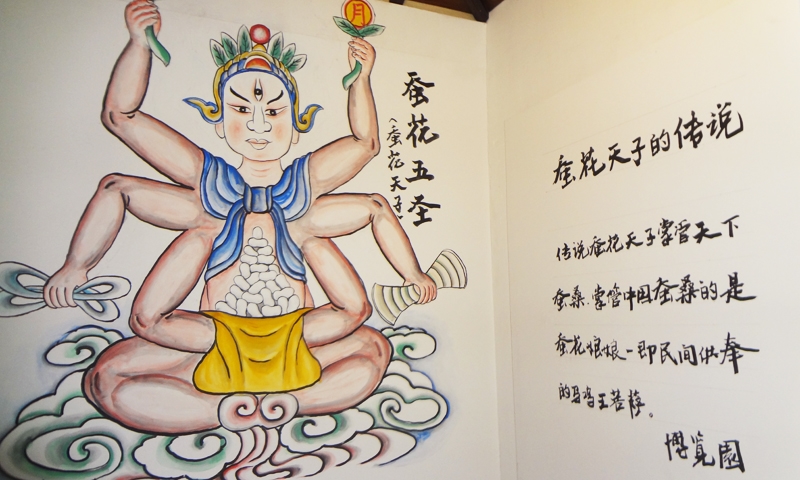 月
蚕花五圣
（蚕花天子）
蚕花天子的传说
传说蚕花天子掌管天下
蚕桑.掌管中国蚕桑的是
蚕花娘娘-即民间供奉
的马鸣王菩萨。
博览園